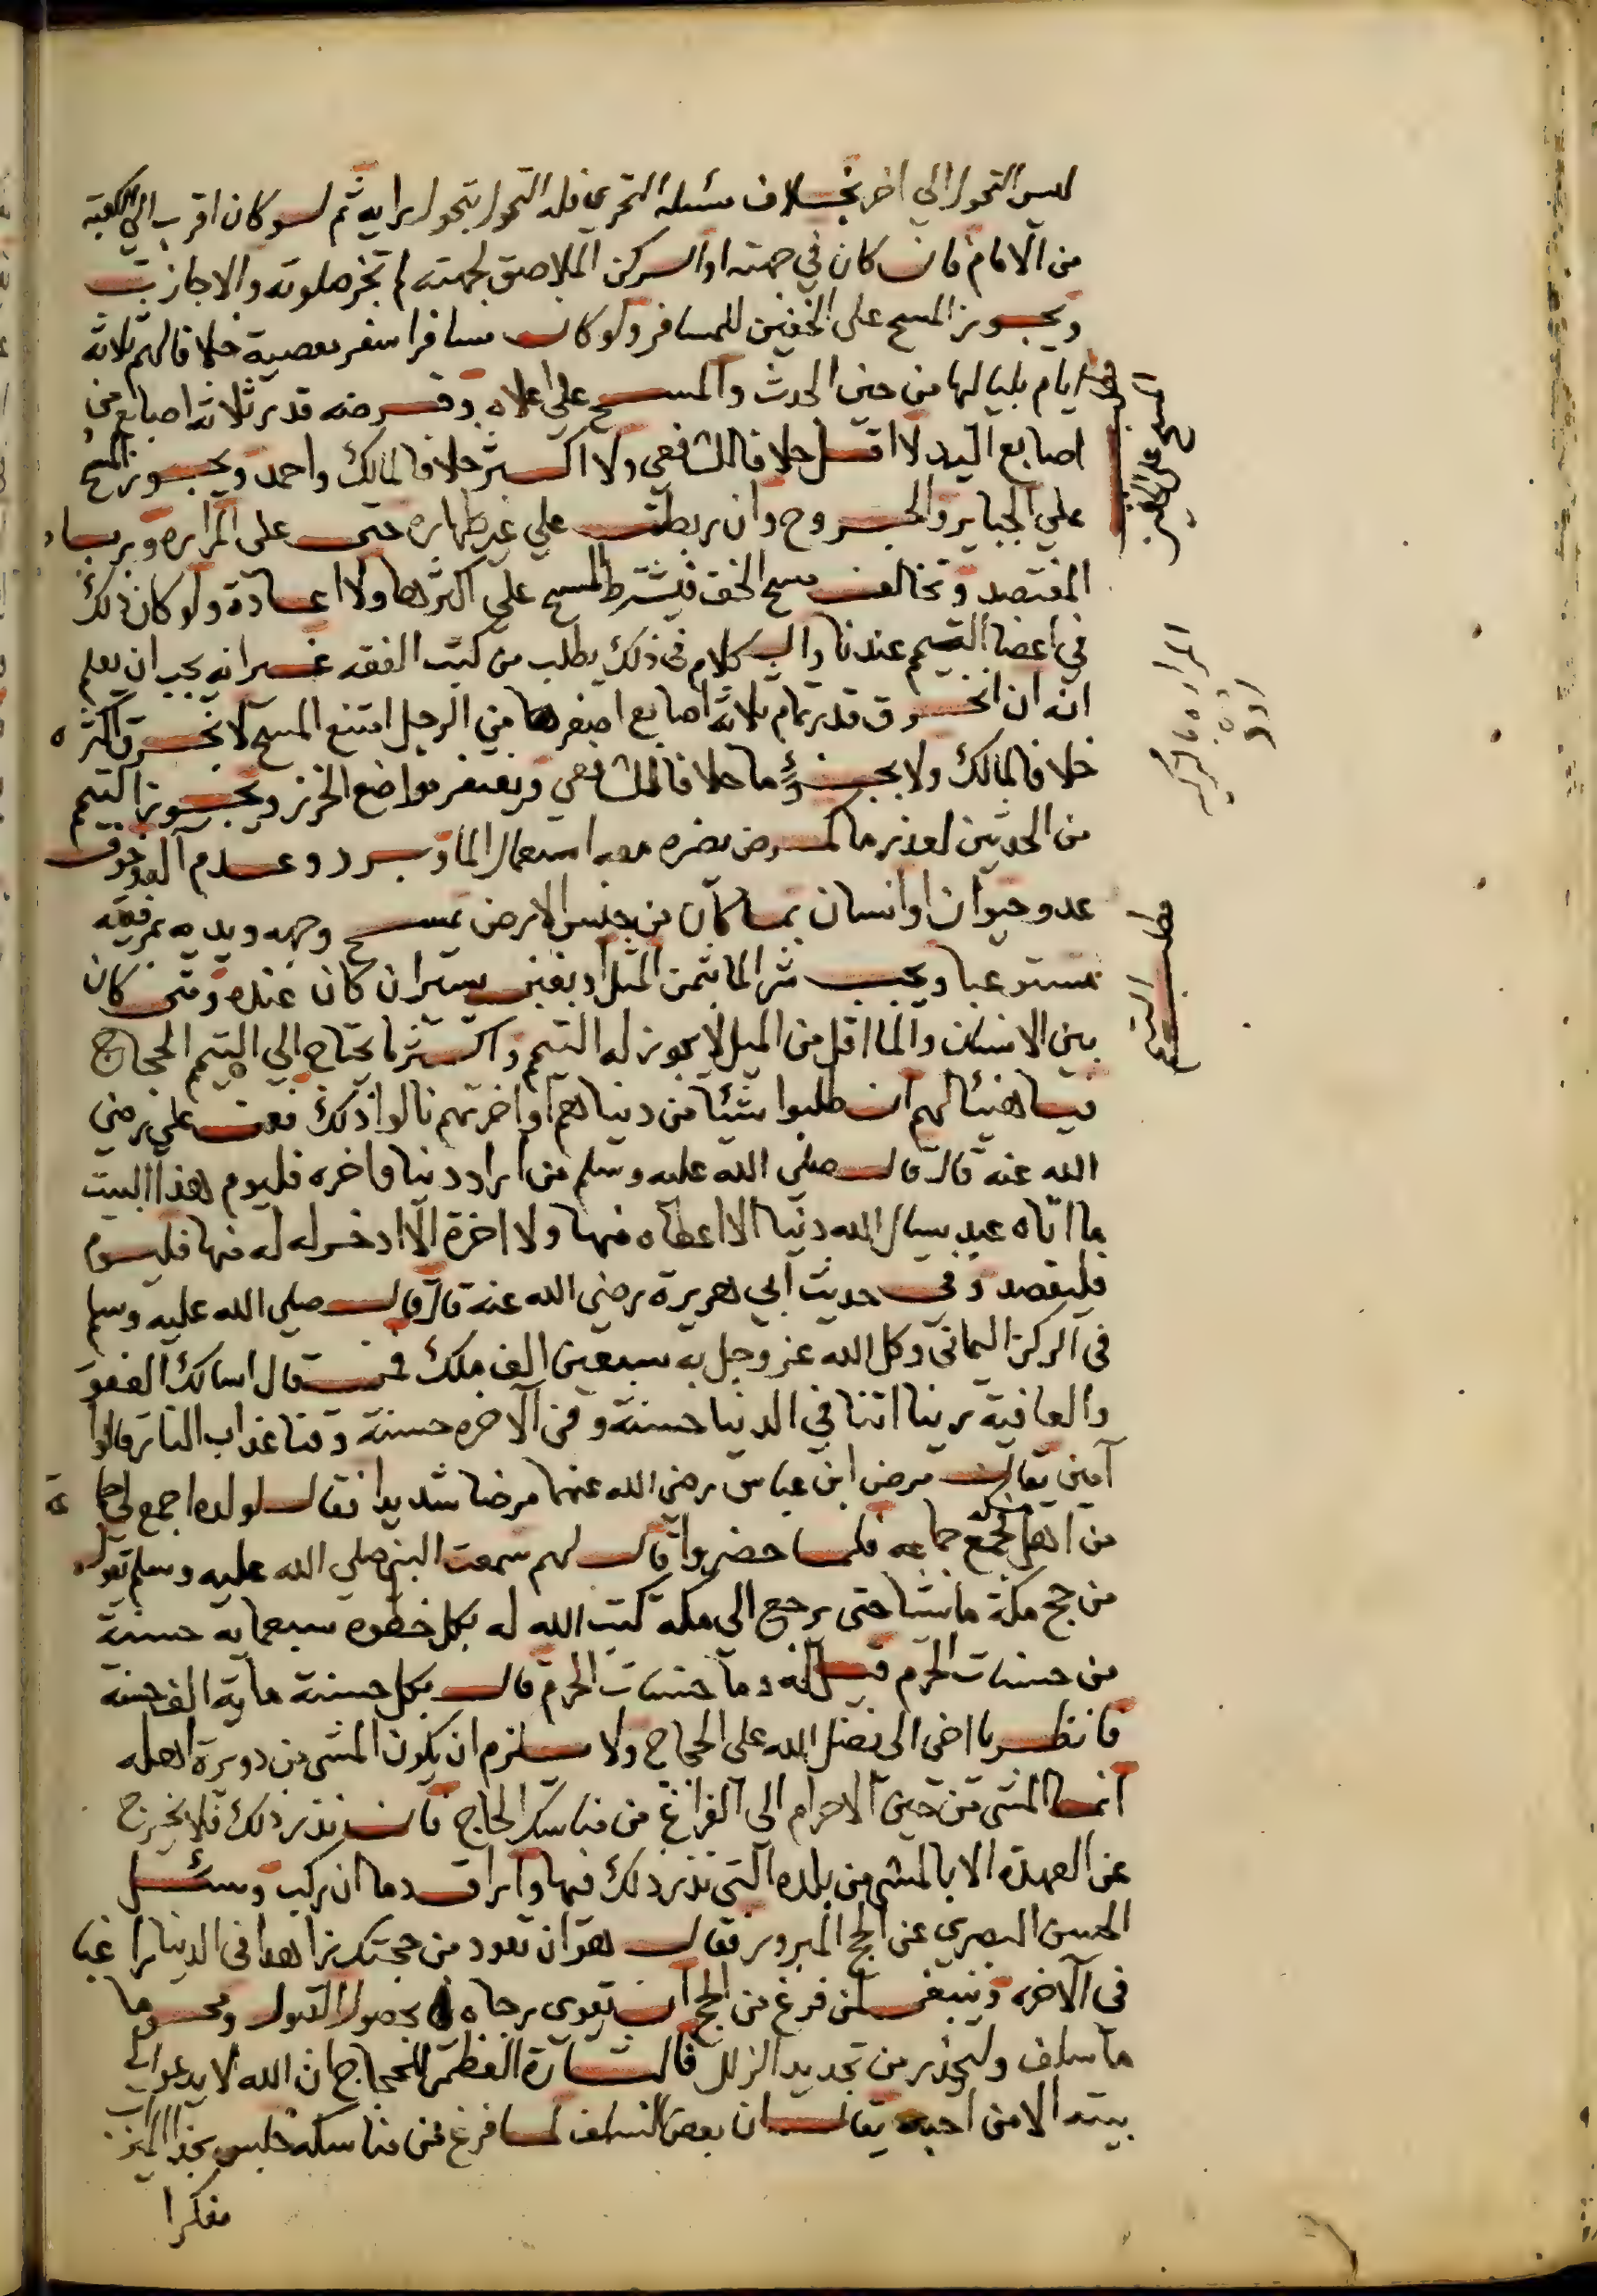 ليس التحول الي اخر بخلاف مسئلة التحري فله التحول بتحول رايه ثم لو كان اقرب الي الكعبة
من الامام فان كان في جهته او الركن الملاصق لجهته لم تجز صلوته والا جازت
ويجوز المسح على الخفين للمسافر ولو كان مسافرا سفر معصية خلافا لهم ثلاثة
ايام بلياليها من حين الحدث والمسح علي اعلاه وفرضه قدر ثلاثة اصابع من
اصابع اليد لا اقل خلافا للشافعي ولا اكثر خلافا لمالك واحمد ويجوز المسح
علي الجباير والجروح وان ربطت علي غير طهاره حتى على المراره ورباط
المفتصد وتخالف مسح الخف فيشترط المسح علي اكثرها ولا اعادة ولو كان ذلك
في اعضا التيمم عندنا والكلام في ذلك يطلب من كتب الفقه غير انه يجب ان يعلم
انه ان انخرق قدر تمام ثلاثة اصابع اصغرها من الرجل امتنع المسح لا بخرق اكثره
خلافا لمالك ولا بجزؤ ما خلافا للشافعي ويغتفر مواضع الخرز ويجوز التيمم
من الحدثين لعذر ما كمرض يضره معه استعمال الما وبرد وعدم آلة وخوف
عدو حيوان او انسان بما كان من جنس الارض بمسح وجهه ويديه بمرفقيه
مستوعبا ويجب شرا الما بثمن المثل او بغبن يسير ان كان عنده ومتى كان
بين الانسان والما اقل من الميل لا يجوز له التيمم واكثر ما يحتاج الي التيمم الحجاج
فيا هنيئا لهم ان طلبوا شيئا من دنياهم او اخرتهم نالوا ذلك فعن علي رضي
الله عنه قال قال صلي الله عليه وسلم من اراد دنيا واخره فليوم هذا البيت
ما اتاه عبد يسال الله دنيا الا اعطاه منها ولا اخرة الا ادخر له منها فليوم
فليقصد وفي حديث ابي هريرة رضي الله عنه قال قال صلي الله عليه وسلم
في الركن اليماني وكل الله عز وجل به سبعين الف ملك فمن قال اسالك العفو
والعافية ربنا اتنا في الدنيا حسنة وفي الآخره حسنة وقنا عذاب النار قالوا
آمين يقال مرض ابن عباس رضي الله عنهما مرضا شديدا فقال لولده اجمع لي جماعة
من اهل مكة فجمع جماعه فلما حضروا قال لهم سمعت النبي صلي الله عليه وسلم يقول
من حج مكة ماشيا حتى يرجع الى مكه كتب الله له بكل خطوه سبعماية حسنة
من حسنات الحرم قيل له وما حسنات الحرم قال بكل حسنة ماية الف حسنة
فانظر يا اخى الى فضل الله على الحجاج ولا يلزم ان يكون المشى من دويرة اهله
انما المشى من حين الاحرام الى الفراغ من مناسك الحاج فان نذر ذلك فلا يخرج
عن العهدة الا بالمشي من بلده التي نذر ذلك فيها واراق دما ان ركب وسئل
الحسن البصري عن الحج المبرور فقال هو ان تعود من حجتك زاهدا في الدنيا راغبا
في الآخره وينبغي لمن فرغ من الحج ان يقوى رجاه بحصول القبول ومحو ما
ما سلف وليحذر من تجديد الزلل فالبشارة العظمى للحجاج ان الله لا يدعوا الي
بيته الا من احبه يقال ان بعض السلف لما فرغ من مناسكه جلس بحذا الميزاب
مفكرا
المسح على الخفين
المراره ما
مطلب التيمم